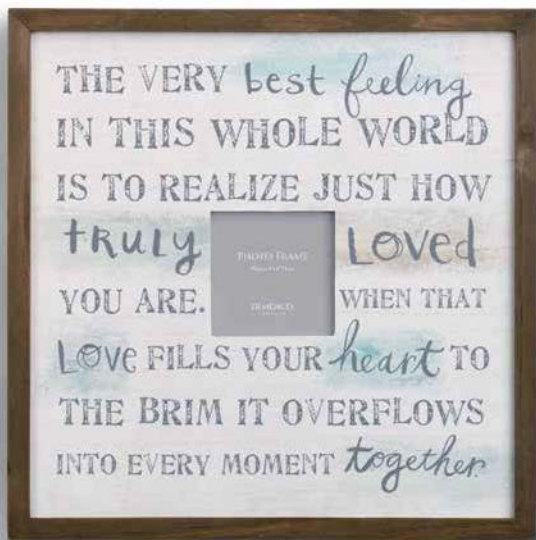 THE VERY best feeling
IN THIS WHOLE WORLD
IS TO REALIZE JUST HOW
truly Loved
PHOTO FRAME
YOU ARE. WHEN THAT
Love FILLS YOUR heart TO
THE BRIM IT OVERFLOWS
INTO EVERY MOMENT together.